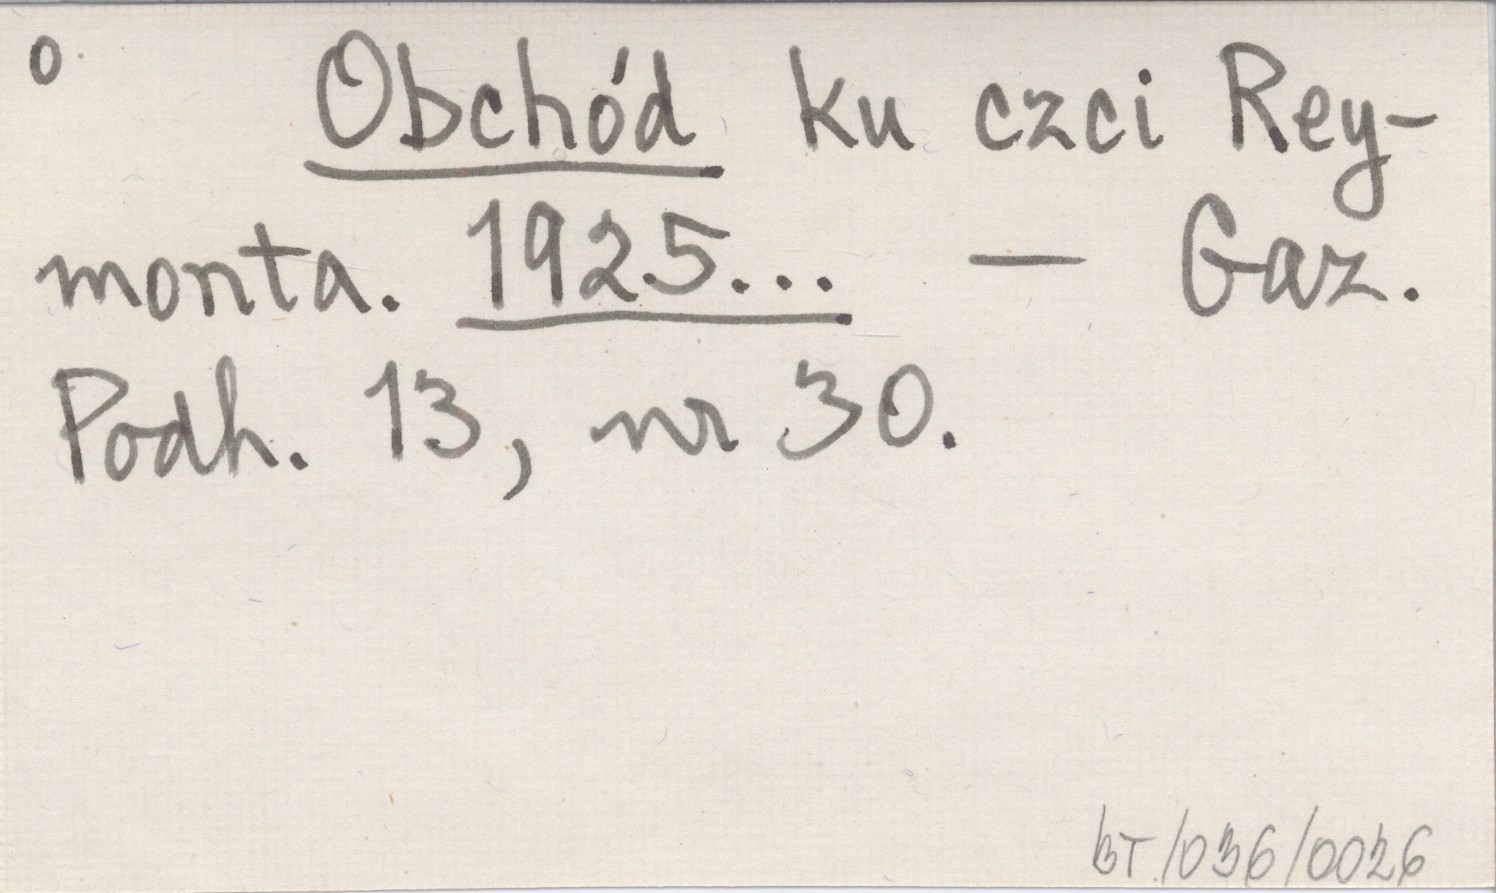 o Obchód ku czci Rey-
monta. 1925... — Gaz.
Podh. 13, nr 30.
BT/036/0026